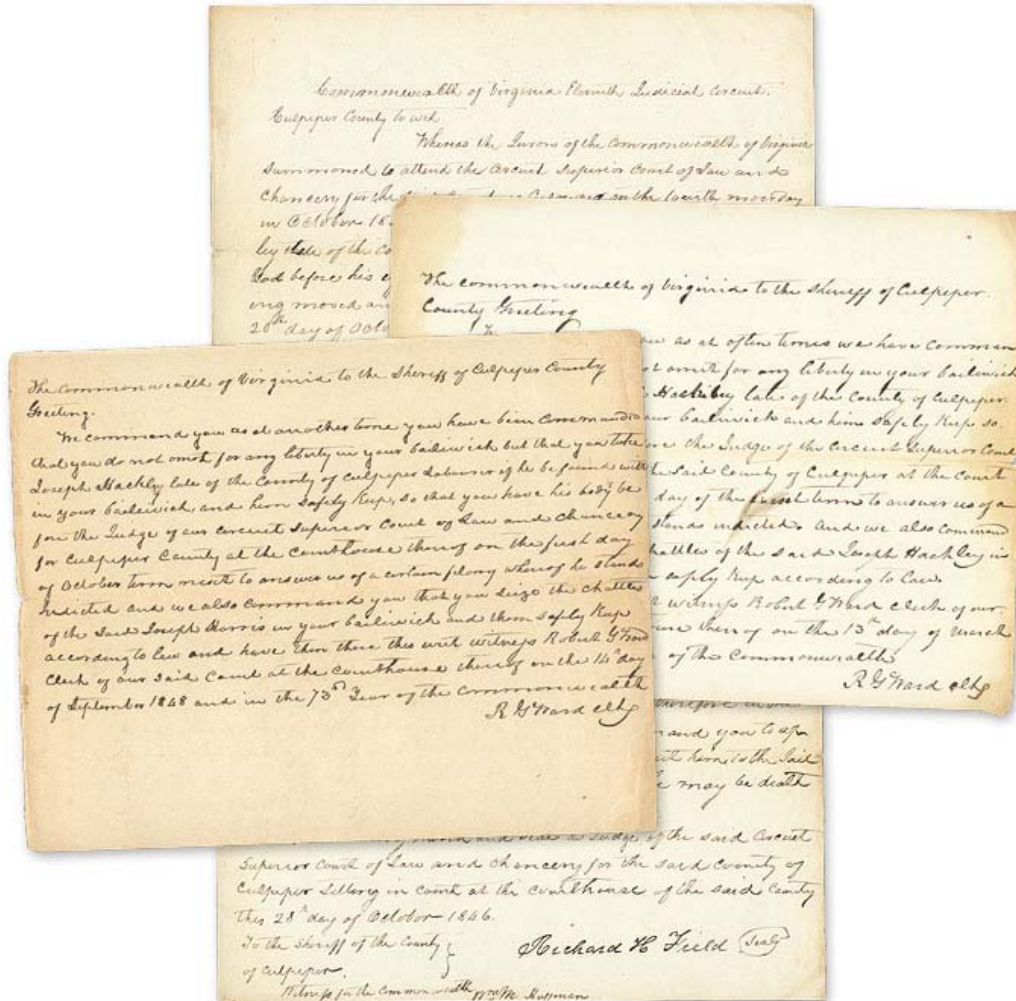 Commonwealth of Virginia Eleventh Judicial Circuit.
Culpeper County to wit
Whereas the Jurors of the Commonwealth of Virginia
Summoned to attend the Circuit Superior Court of Law and
Chancery for the on the fourth monday
in October 18
by late of the Co
God before his e
ing moved an
28th day of Octo
The Commonwealth of Virginia to the Sheriff of Culpeper
County Greeting
as at often times we have comman
not omit for any liberty in your bailiwick
Hackley late of the County of Culpeper
our bailiwick and him Safely Keep so
ore the Judge of the Circuit Superior Court
the Said County of Culpeper at the court
day of the term to answer us of a
stands indicted. And we also command
hattles of the said Joseph Hackley in
safely Keep according to law.
witness Robert G Ward clerk of our
thereof on the 13th day of March
of the Commonwealth
R G Ward clk
The Commonwealth of Virginia to the Sheriff of Culpeper County
Greeting.
We command you as at another time you have been Commanded
that you do not omit for any liberty in your bailiwick but that you take
Joseph Hackly late of the County of Culpeper Labourer if he be found with
in your bailiwick and him Safely Keep, so that you have his body be
fore the Judge of our Circuit Superior Court of Law and Chancery
for Culpeper County at the Courthouse thereof on the first day
of October term next to answer us of a certain felony whereof he stands
Indicted and we also Command you that you Seize the Chattles
of the Said Joseph Harris in your bailiwick and them Safely Keep
according to law and have then there this writ witness Robert G Ward
Clerk of our Said Court at the Courthouse thereof on the 14th day
of September 1848 and in the 73rd Year of the Commonwealth
R G Ward clk
mand you to ap
him to the Jail
he may be dealt
hand and seal as Judge of the said Circuit
Superior Court of Law and Chancery for the said County of
Culpeper Sitting in Court at the Courthouse of the said County
this 28th day of October 1846.
To the Sheriff of the County
of Culpeper.
Richard H Field Seal
Witness for the Commonwealth Wm M Huffman